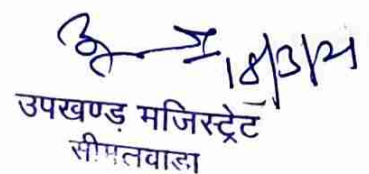 18/3/21
उपखण्ड मजिस्ट्रेट
सीमलवाडा